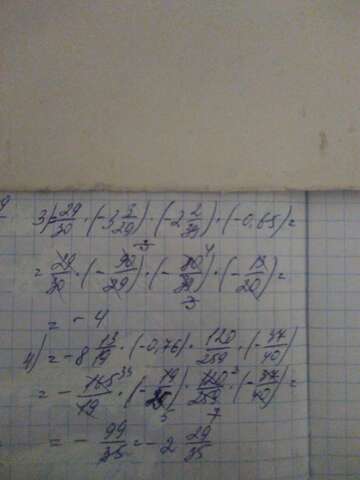 3) 29/30 · (-3 3/29) · (-2 2/39) · (-0,65) =
= 29/30 · (-90/29) · (-80/39) · (-13/20) =
= -4
4) = -8 13/19 · (-0,76) · 120/259 · (-37/40)
= -165/19 · (-19/25) · 120/259 · (-37/40) =
= -99/35 = -2 29/35